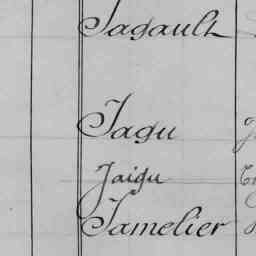 Jagault
Jagu
Jaigu
Jamelier